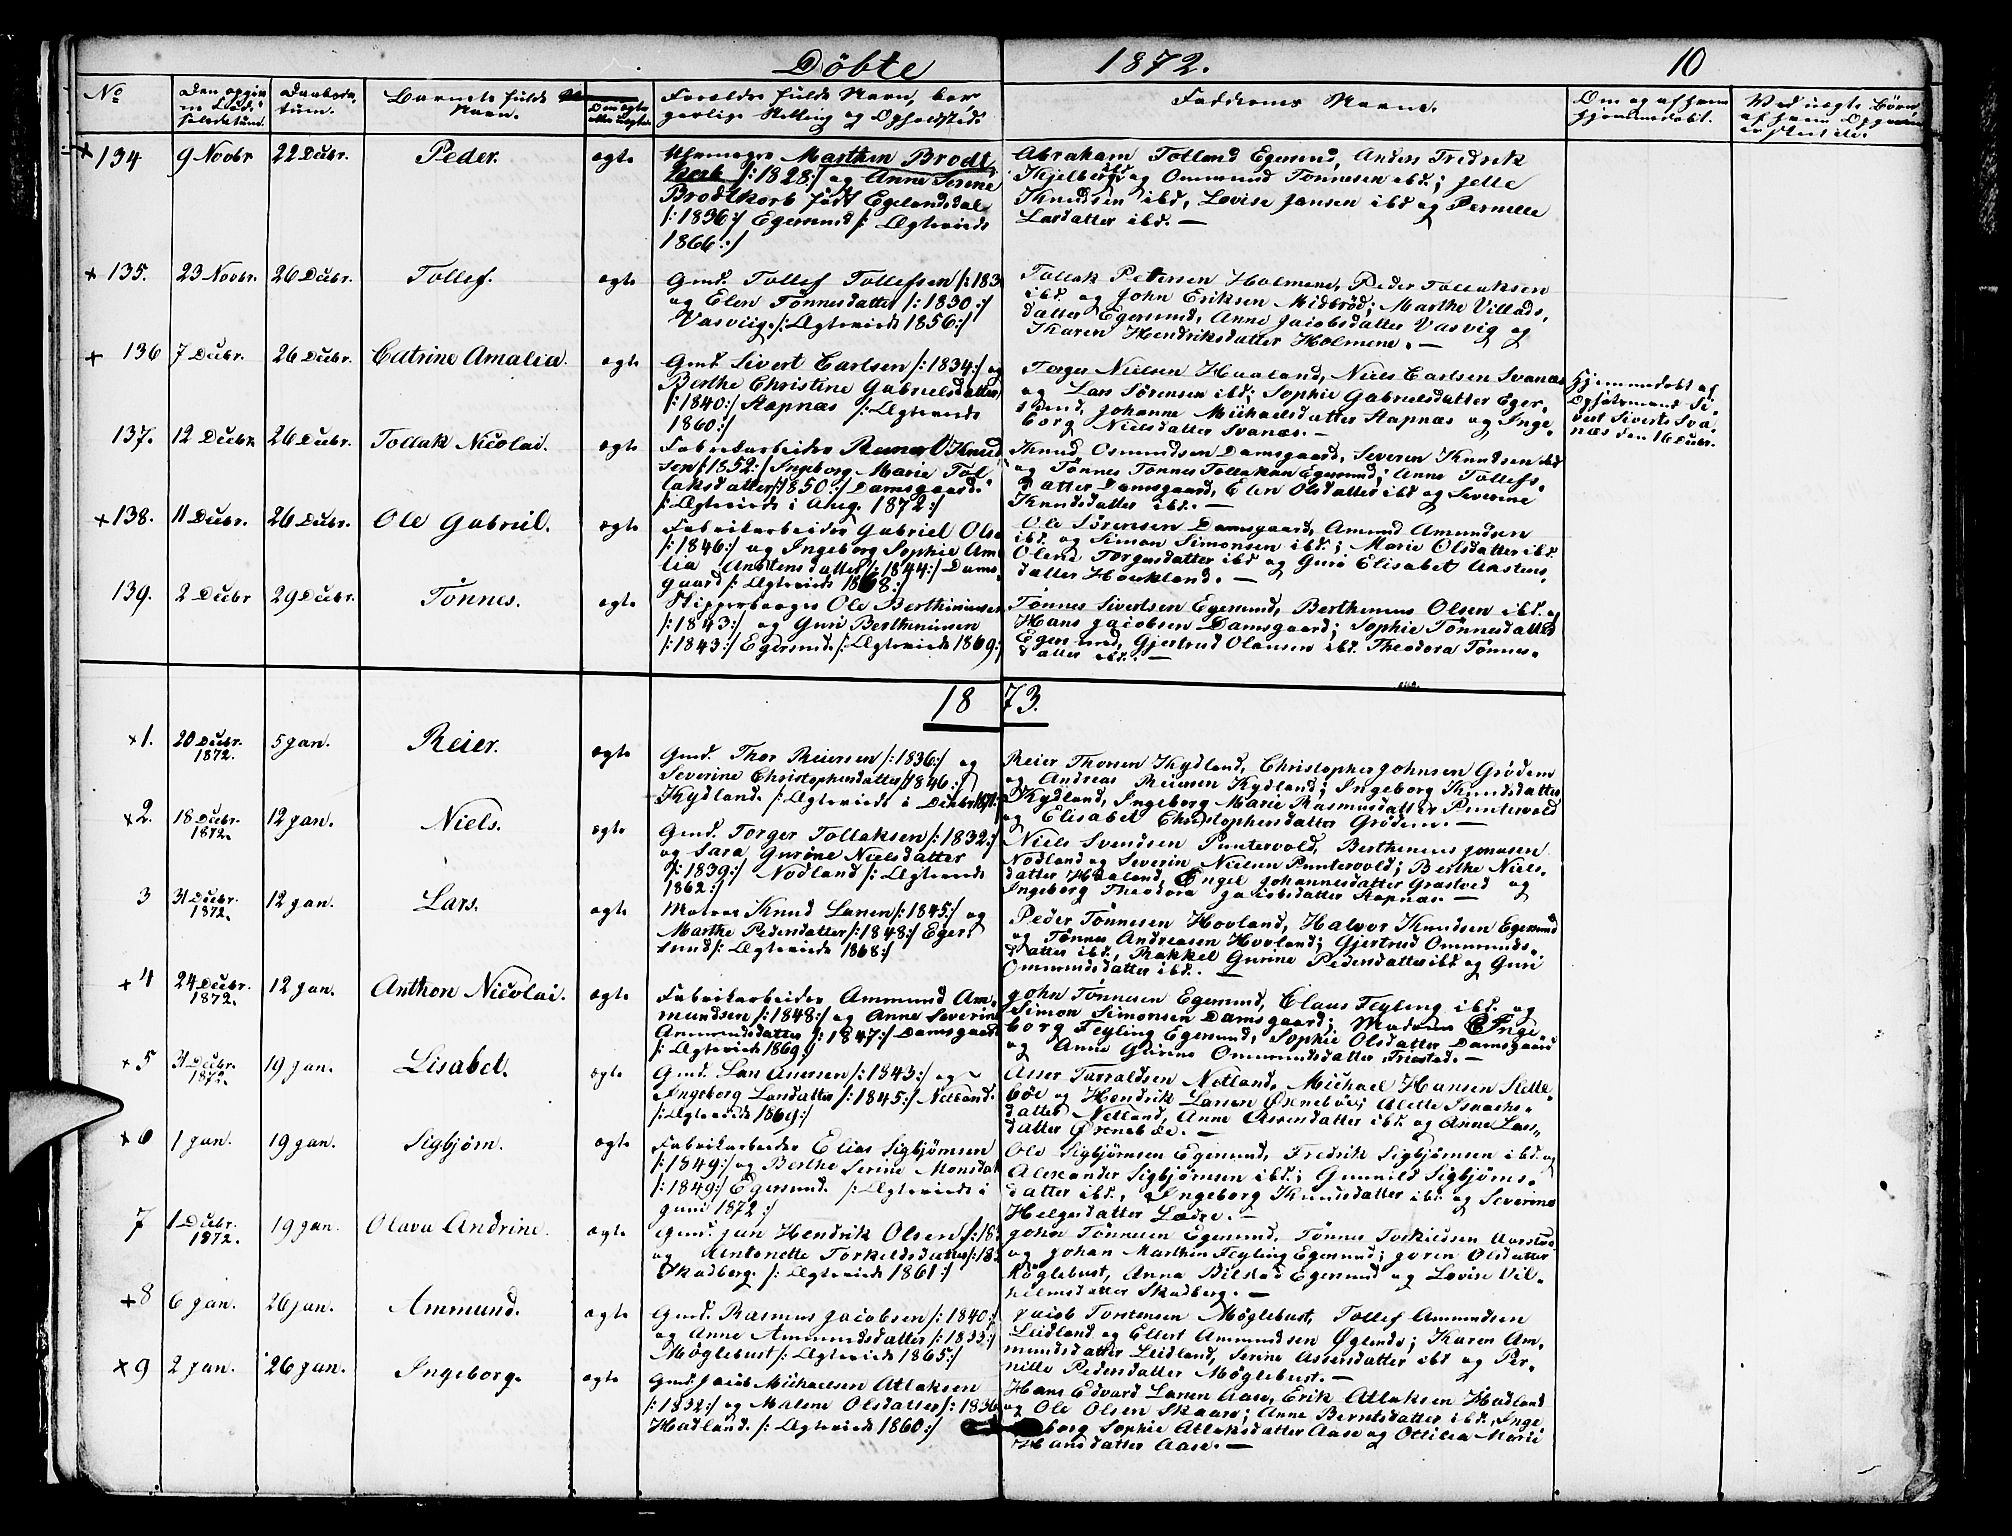 Döbte 1872. 10
No
Den opgivne Födselsdatum.
Daabsdatum.
Barnets fulde Navn.
Om ægte eller uægte.
Forældres fulde Navn, borgerlige Stilling og Opholdssted.
Faddernes Navne.
Om og af hvem hjemmedöbt.
Ved uægte Börn
+ 134 9 Novbr 22 Decbr. Peder. ægte
Uhrmager Marthin Brodt
korb /:1828:/ og Anne Serine
Brodtkorb födt Egelandsdal
/:1836:/ Egersund /: Ægteviede
1866:/
Abraham Tolland Egersund, Anders Fredrik
Kjelbeds og Ommund Tönnesen ibd; Jelle
Knudsen ibd, Lovise Jansen ibd og Pernille
Larsdatter ibd. —
+ 135. 23 Novbr. 26 Decbr. Tollef. ægte
Gmd. Tollef Tollefsen /:183
og Elen Tönnesdatter /:1830:/
Vasvug. /: Ægteviede 1856:/
Tollak Petersen Holmene, Peder Tollaksen
ibd. og John Eriksen Midbröd; Marthe Villads,
datter Egersund, Anne Jacobsdatter Vasvig og
Karen Hendriksdatter Holmene. —
+ 136 7 Decbr. 26 Decbr. Catrine Amalia. ægte
Gmd. Sivert Carlsen /:1834:/ og
Berthe Christine Gabrielsdatter
/:1840:/ Stapnæs /: Ægteviede
1860:/
Torger Nielsen Haaland, Niels Carlsen Svanæs
og Lars Sörensen ibd; Sophie Gabrielsdatter Eger-
sund, Johanne Michaelsdatter Stapnæs og Inge-
borg Nielsdatter Svanæs. —
Hjemmedöbt af
Opsidsmand Si-
vert Siverts Sva-
næs den 16 Decbr.
137. 12 Decbr. 26 Decbr. Tollak Nicolai. ægte
Fabrikarbeider Reinert Knud
sen /:1852:/ Ingeborg Marie Tol
laksdatter /:1850:/ Damsgaard.
/: Ægteviede i Aug. 1872:/
Knud Osmundsen Damsgaard, Severin Knudsen ibd
og Tönnes Tönnes Tollaksen Egersund; Anne Tollefs-
datter Damsgaard, Elen Olsdatter ibd og Severine
Knudsdatter ibd. —
+ 138. 11 Decbr. 26 Decbr. Ole Gabriel. ægte
Fabrikarbeider Gabriel Olse
/:1846:/ og Ingeborg Sophie Ama
lia Anstensdatter /:1844:/ Dams-
gaard /: Ægteviede 1868:/
Ole Sörensen Damsgaard, Amund Amundsen
ibd. og Simon Simonsen ibd.; Marie Olsdatter ibd.
Olene Torgersdatter ibd og Guri Elisabet Anstens-
datter Houkland. —
139. 2 Decbr 29 Decbr. Tönnes. ægte
Skipperborger Ole Berthiniusen
/:1843:/ og Guri Berthinüsen
/:1843:/ Egersund. /: Ægteviede 1869:/
Tönnes Sivertsen Egersund, Berthenius Olsen ibd. og
Hans Jacobsen Damsgaard; Sophie Tönnesdatter
Egersund, Gjertrud Olausen ibd. Theodora Tönnes-
datter ibd. —
1873.
+ 1. 20 Decbr. 1872. 5 Jan. Reier. ægte
Gmd. Thor Reiersen /:1836:/ og
Severine Christophersdatter /:1846:/
Kydland. /: Ægteviede i Decbr 1871:/
Reier Thorsen Kydland, Christopher Johnsen Grödem
og Andreas Reiersen Kydland; Ingeborg Knudsdatter
Kydland, Ingeborg Marie Rasmusdatter Puntervold
og Elisabet Christophersdatter Grödem. —
+ 2. 18 Decbr. 1872. 12 Jan. Niels. ægte
Gmd. Torger Tollaksen /:1832:/
og Sara Gurine Nielsdatter
/:1839:/ Nodland /: Ægteviede
1862:/
Niels Svendsen Puntervold, Berthenius Jonassen
Nodland og Severin Nielsen Puntervold; Berthe Niels-
datter Haaland, Engel Johannesdatter Grastved og
Ingeborg Theodora Jacobsdatter Stapnæs. —
3 31 Decbr. 1872. 12 Jan. Lars. ægte
Matros Knud Larsen /:1845:/ og
Marthe Pedersdatter /:1848:/ Eger-
sund /: Ægteviede 1868:/
Peder Tönnesen Hovland, Halvor Knudsen Egersund
og Tönnes Andreasen Hovland; Gjertrud Ommunds-
datter ibd., Rakkel Gurine Pedersdatter ibd og Guri
Ommundsdatter ibd. —
+ 4 24 Decbr. 1872. 12 Jan. Anthon Nicolai. ægte
Fabrikarbeider, Ammund Am-
mundsen /:1848:/ og Anne Severine
Ammundsdatter /:1847:/ Damsgaard
/: Ægteviede 1869:/
John Tönnesen Egersund, Claus Feyling ibd. og
Simon Simonsen Damsgaard; Madam Inge-
borg Feyling Egersund, Sophie Olsdatter Damsgaard
og Anne Gurine Ommundsdatter Friestad. —
+ 5 31 Decbr. 1872. 19 Jan. Lisabet. ægte
Gmd. Lars Assersen /:1843:/ og
Ingeborg Larsdatter /:1845:/ Netland.
/: Ægteviede 1869:/
Asser Tarraldsen Netland, Michael Hansen Slette-
böe og Hendrik Larsen Örsneböe; Alette Isaachs-
datter Netland, Anne Assersdatter ibd. og Anne Lars-
datter Örsneböe. —
+ 6 1 Jan. 19 Jan. Sigbjörn. ægte
Fabrikarbeider Elias Sigbjörnsen
/:1849:/ og Berthe Serine Monsdat
/:1849:/ Egersund. /: Ægteviede i
Juni 1872:/
Ole Sigbjörnsen Egersund, Fredrik Sigbjörnsen ibd. og
Alexander Sigbjörnsen ibd; Gunnild Sigbjörns-
datter ibd., Ingeborg Knudsdatter ibd. og Severine
Helgesdatter Lædre. —
7 1 Decbr. 1872. 19 Jan. Olava Andrine. ægte
Gmd. Jan Hendrik Olsen /:183
og Antonette Torkeldsdatter /:183
Skadberg. /: Ægteviede 1861:/
John Tönnesen Egersund. Tönnes Torkildsen Aarstad
og Johan Marthin Feyling Egersund; Joren Olsdatter
Möglebust, Anna Bilstad Egersund og Lovise Vil-
helmsdatter Skadberg. —
+ 8 6 Jan. 26 Jan. Ammund. ægte
Gmd. Rasmus Jacobsen /:1840:/
og Anne Ammundsdatter /:1833:/
Möglebust /: Ægteviede 1865:/
Jacob Torstensen Möglebust, Tollef Ammundsen
Leidland og Ellert Ammundsen Öglende; Karen Am-
mundsdatter Leidland, Serine Assersdatter ibd og Per-
nille Pedersdatter Möglebust. —
+ 9 2 Jan. 26 Jan. Ingeborg. ægte
Gmd. Jacob Michaelsen Atlaksen
/:1832:/ og Malene Olsdatter /:1836
Hadland. /: Ægteviede 1860:/
Hans Edvard Larsen Aase, Erik Atlaksen Hadland
og Ole Olsen Skaar; Anne Berntsdatter ibd., Inge
borg Sophie Atlaksdatter Aase og Ottilia Marie
Hansdatter Aase. —